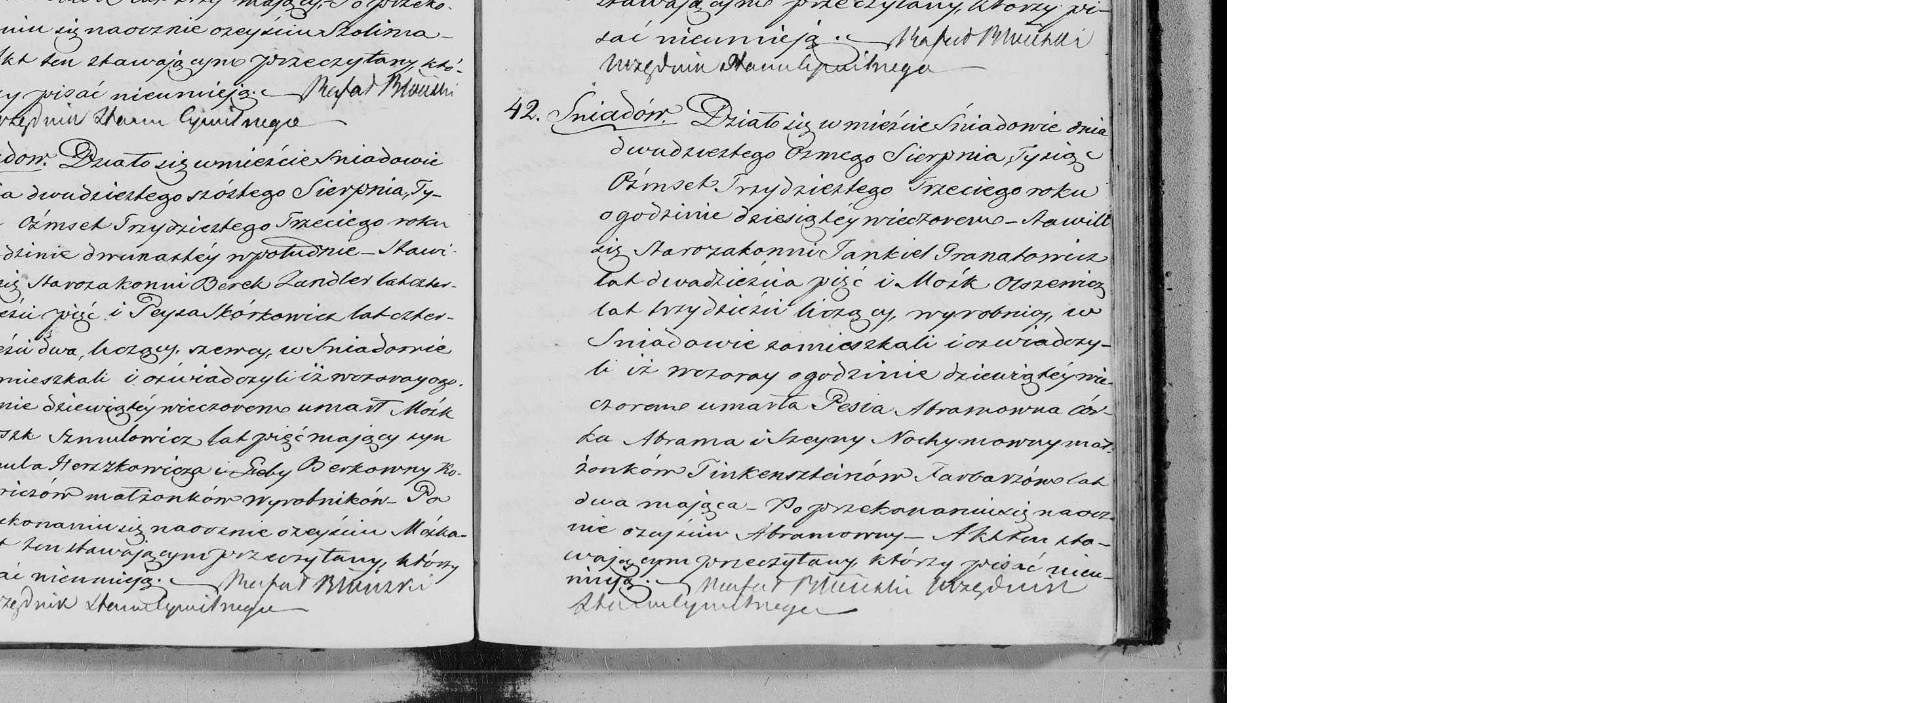 niu się naocznie ozeyściu Szolima-
Akt ten stawającym przeczytany, któ-
rzy pisać nieumieją. Rafał
Urzędnik Stanu Cywilnego
Działo się wmieście Sniadowie
dwudziestego szóstego Sierpnia, Ty-
Ośmset Trzydziestego Trzeciego roku
dzinie dwunastéy wpołudnie - Stawi-
się Starozakonni Berek Zandler lat czter-
pięć i Peysa Skórkowicz lat czter-
dwa, liczący, szewcy, w Sniadowie
mieszkali i oświadczyli iż wczoray ogo-
nie dziewiątéy wieczorem umarł Mośk
Szmulowicz lat pięć mający syn
Herszkowicza i Berkowny Ko-
małżonków wyrobników - Po
konaniu się naocznie ozeyściu Mośka-
ten stawającym przeczytany, którzy
nieumieją. Rafał
Urzędnik Stanu Cywilnego
stawającym przeczytany, którzy pi-
sać nieumieją. Rafał
Urzędnik Stanu Cywilnego
42. Sniadów. Działo się w mieście Sniadowie dnia
dwudziestego Osmego Sierpnia, Tysiąc
Ośmset Trzydziestego Trzeciego roku
o godzinie dziesiątéy wieczorem - Stawili
się Starozakonni Jankiel Granatowicz
lat dwadzieścia pięć i Mośk Olszewicz
lat trzydzieści liczący, wyrobnicy, w
Sniadowie zamieszkali i oświadczy-
li iż wczoray o godzinie dziewiątéy wie-
czorem umarła Pesia Abramowna Cór-
ka Abrama i Szeyny Nochymowny mał-
żonków Finkenszteinów Farbarzów lat
dwa mająca - Po przekonaniu się naocz-
nie ozejściu Abramowny - Akt ten sta-
wającym przeczytany, którzy pisać nieu-
mieją. Rafał Urzędnik
Stanu Cywilnego